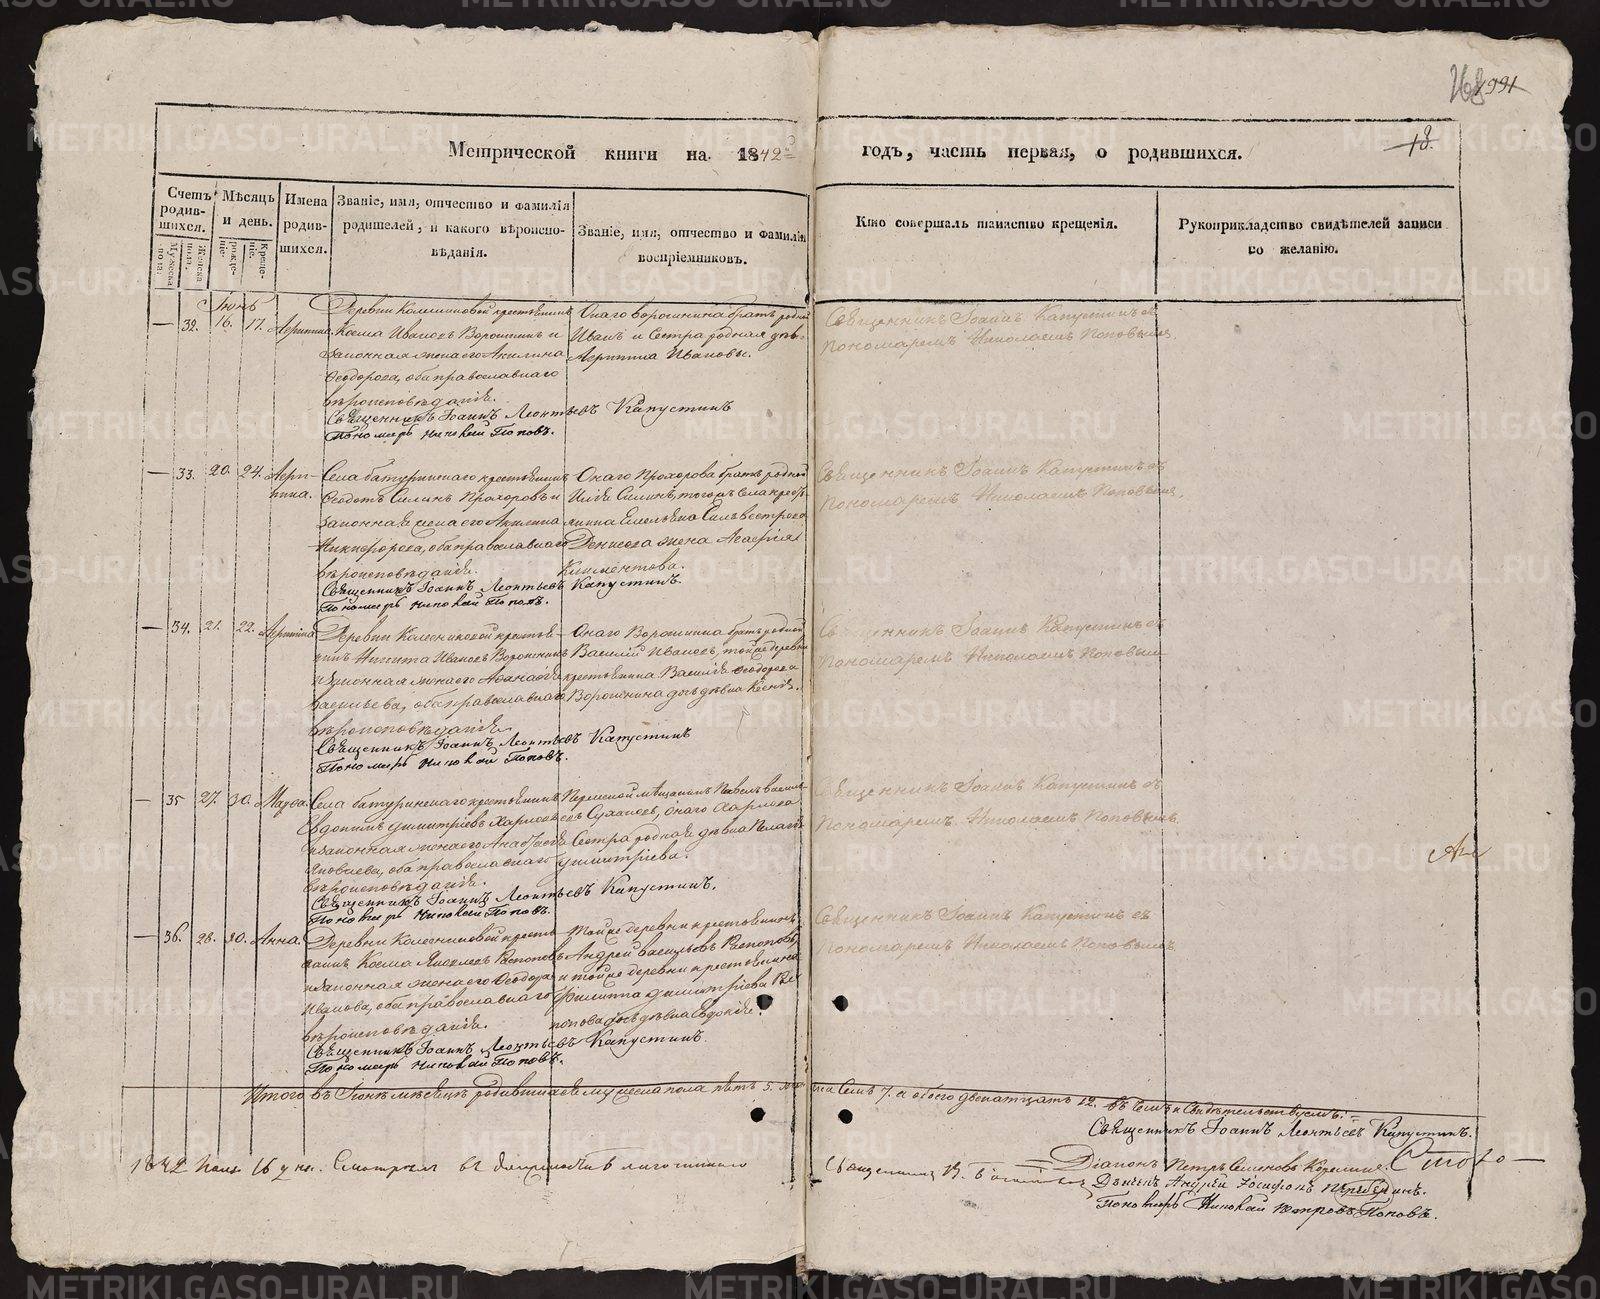 991
18.
Метрической книги на 1842й годъ, часть первая, о родившихся.
Счетъ родив-шихся.
Мужеска пола.
Женска пола.
Мѣсяцъ и день.
рожде-нія.
Креще-нія.
Имена родив-шихся.
Званіе, имя, отчество и фамилія родителей, и какого вѣроиспо-вѣданія.
Званіе, имя, отчество и фамилія воспріемниковъ.
Кто совершалъ таинство крещенія.
Рукоприкладство свидѣтелей записи по желанію.
Іюнь
— 32. 16. 17. Агрипина.
Деревни крестьянинъ
Косма Ивановъ Ворошнинъ и
законная жена его Акилина
Ѳеодорова, оба православнаго
вѣроисповѣданія.
Онаго Ворошнина братъ родной
Иванъ и Сестра родная дѣв.
Агрипина Ивановы.
Священникъ Іоаннъ Капустинъ съ
пономаремъ Николаемъ Поповымъ.
Священникъ Іоаннъ Леонтьевъ Капустинъ
Пономарь Николай Поповъ.
— 33. 20. 24. Агри-
пина.
Села батуринскаго крестьянинъ
Ѳедотъ Силинъ Прохоровъ и
законная жена его Акилина
Никифорова, оба православнаго
вѣроисповѣданія.
Онаго Прохорова братъ родной
Илья Силинъ, тогожъ села крестья-
нина Емельяна Сильвестрова
Денисова жена Агафія
Климентова.
Священникъ Іоаннъ Капустинъ съ
пономаремъ Николаемъ Поповымъ.
Священникъ Іоаннъ Леонтьевъ Капустинъ.
Пономарь Николай Поповъ.
— 34. 21. 22. Агрипина
Деревни Колесниковой крестья-
нинъ Никита Ивановъ Ворошнинъ
и законная жена его Аѳанасія
Васильева, оба православнаго
вѣроисповѣданія.
Онаго Ворошнина братъ родной
Василій Ивановъ, тойже деревни
крестьянина Василія Ѳеодорова
Ворошнина дочь дѣвица Ксенія.
Священникъ Іоаннъ Капустинъ съ
пономаремъ Николаемъ Поповымъ
Священникъ Іоаннъ Леонтьевъ Капустинъ
Пономарь Николай Поповъ.
— 35 27. 30.
Села батуринскаго крестьянинъ
Евдокимъ Димитріевъ Харловъ
и законная жена его Анастасія
Яковлева, оба православнаго
вѣроисповѣданія.
мѣщанинъ Павелъ Василь-
евъ онаго Харлова
Сестра родная дѣвица Пелагія
Димитріева.
Священникъ Іоаннъ Капустинъ съ
пономаремъ Николаемъ Поповымъ.
Священникъ Іоаннъ Леонтьевъ Капустинъ.
Пономарь Николай Поповъ.
— 36. 28. 30. Анна.
Деревни Колесниковой кресть-
янинъ Косма Яковлевъ Распоповъ
и законная жена его Ѳеодора
Иванова, оба православнаго
вѣроисповѣданія.
Тойже деревни крестьянинъ
Андрей Васильевъ Распоповъ
и тойже деревни крестьянина
Филиппа Димитріева Рас-
попова дочь дѣвица Евдокія.
Священникъ Іоаннъ Капустинъ съ
пономаремъ Николаемъ Поповымъ.
Священникъ Іоаннъ Леонтьевъ Капустинъ.
Пономарь Николай Поповъ.
Итого въ Іюнѣ мѣсяцѣ родившихся мужеска пола пять 5. женска Семь 7. а обоего двенатцать 12. въ семъ и Свидѣтельствуемъ:
Священникъ Іоаннъ Леонтьевъ Капустинъ.
Діаконъ Петръ Семеновъ
Дьячекъ Андрей Іосифовъ
Пономарь Николай Петровъ Поповъ.
1842 16 Смотрѣлъ въ
Священникъ
METRIKI.GASO-URAL.RU